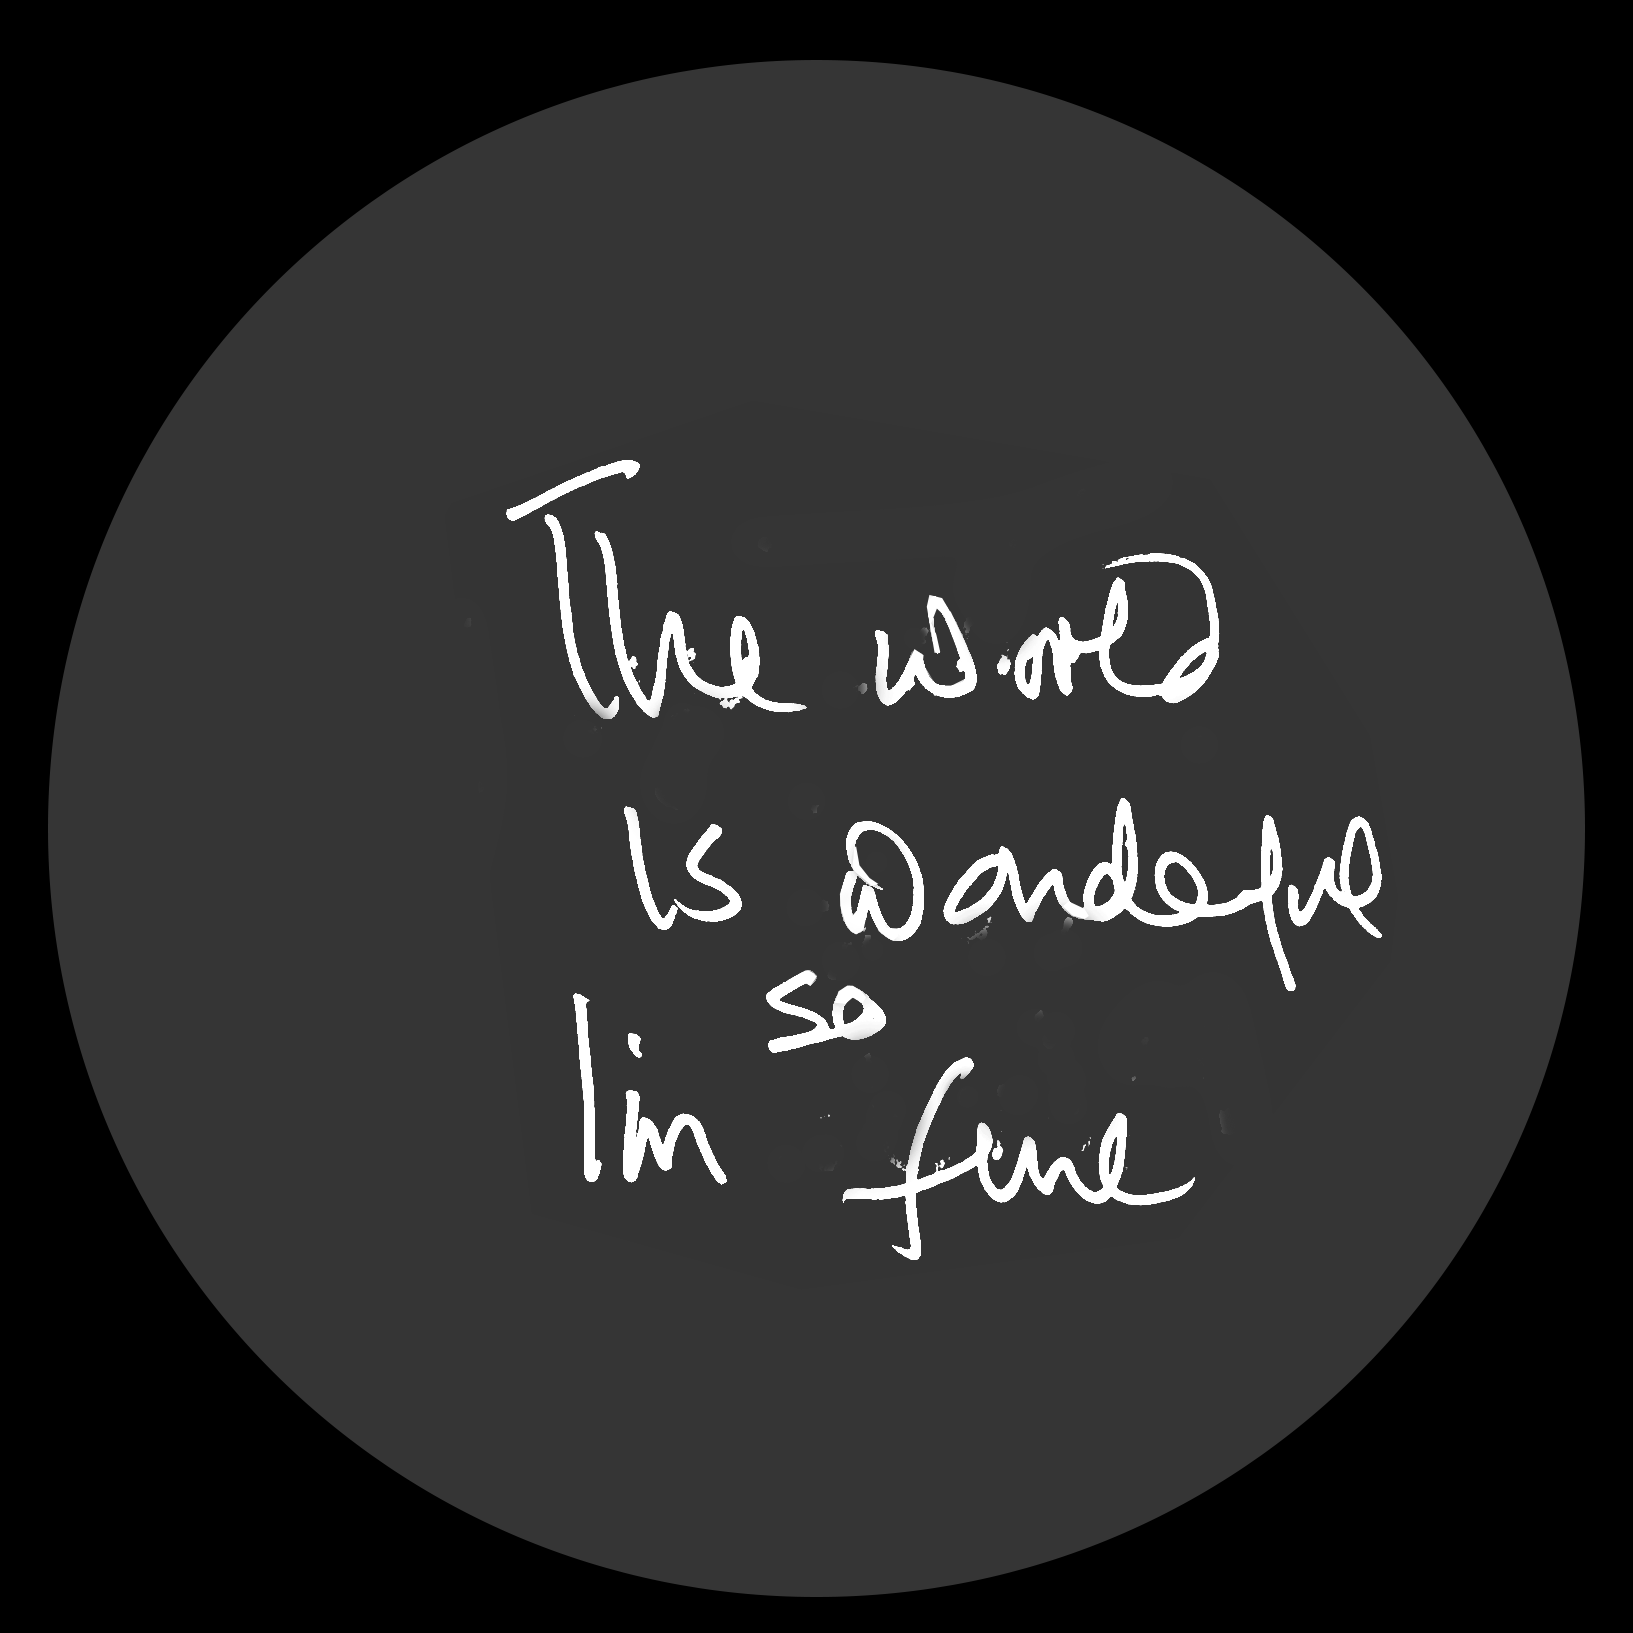 The world
is wonderful
so
I'm fine